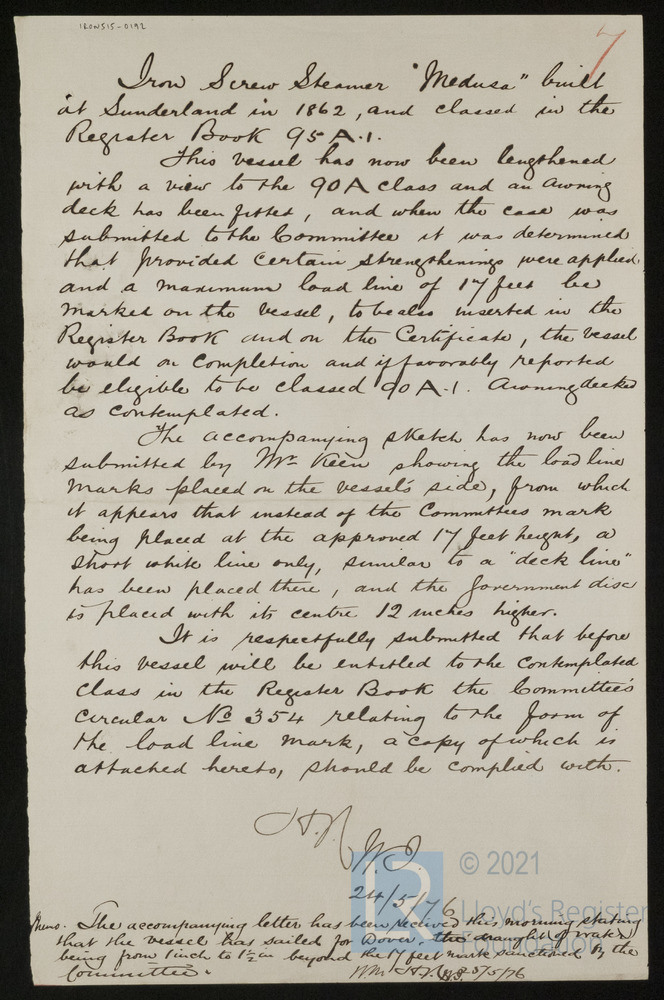 IRON515-0192
7
Iron Screw Steamer "Medusa" built
at Sunderland in 1862, and classed in the
Register Book 95 A.1.
This vessel has now been lengthened
with a view to the 90A class and an awning
deck has been fitted, and when the case was
submitted to the Committee it was determined
that provided certain strengthenings were applied
and a maximum load line of 17 feet be
marked on the vessel, to be also inserted in the
Register Book and on the Certificate, the vessel
would on completion and if favorably reported
be eligible to be classed 90 A.1. Awning decked
as contemplated.
The accompanying sketch has now been
submitted by Mr Keen showing the load line
marks placed on the vessel's side, from which
it appears that instead of the Committees mark
being placed at the approved 17 feet height, a
short white line only, similar to a "deck line"
has been placed there, and the Government disc
is placed with its centre 12 inches higher.
It is respectfully submitted that before
this vessel will be entitled to the contemplated
class in the Register Book the Committee's
circular No 354 relating to the form of
the load line mark, a copy of which is
attached hereto, should be complied with.
24/5/76
© 2021
Lloyd's Register
Foundation
Memo. The accompanying letter has been received this morning stating
that the vessel has sailed for Dover. the draught of water
being from 1 inch to 1½ in beyond the 17 feet mark sanctioned by the
Committee.